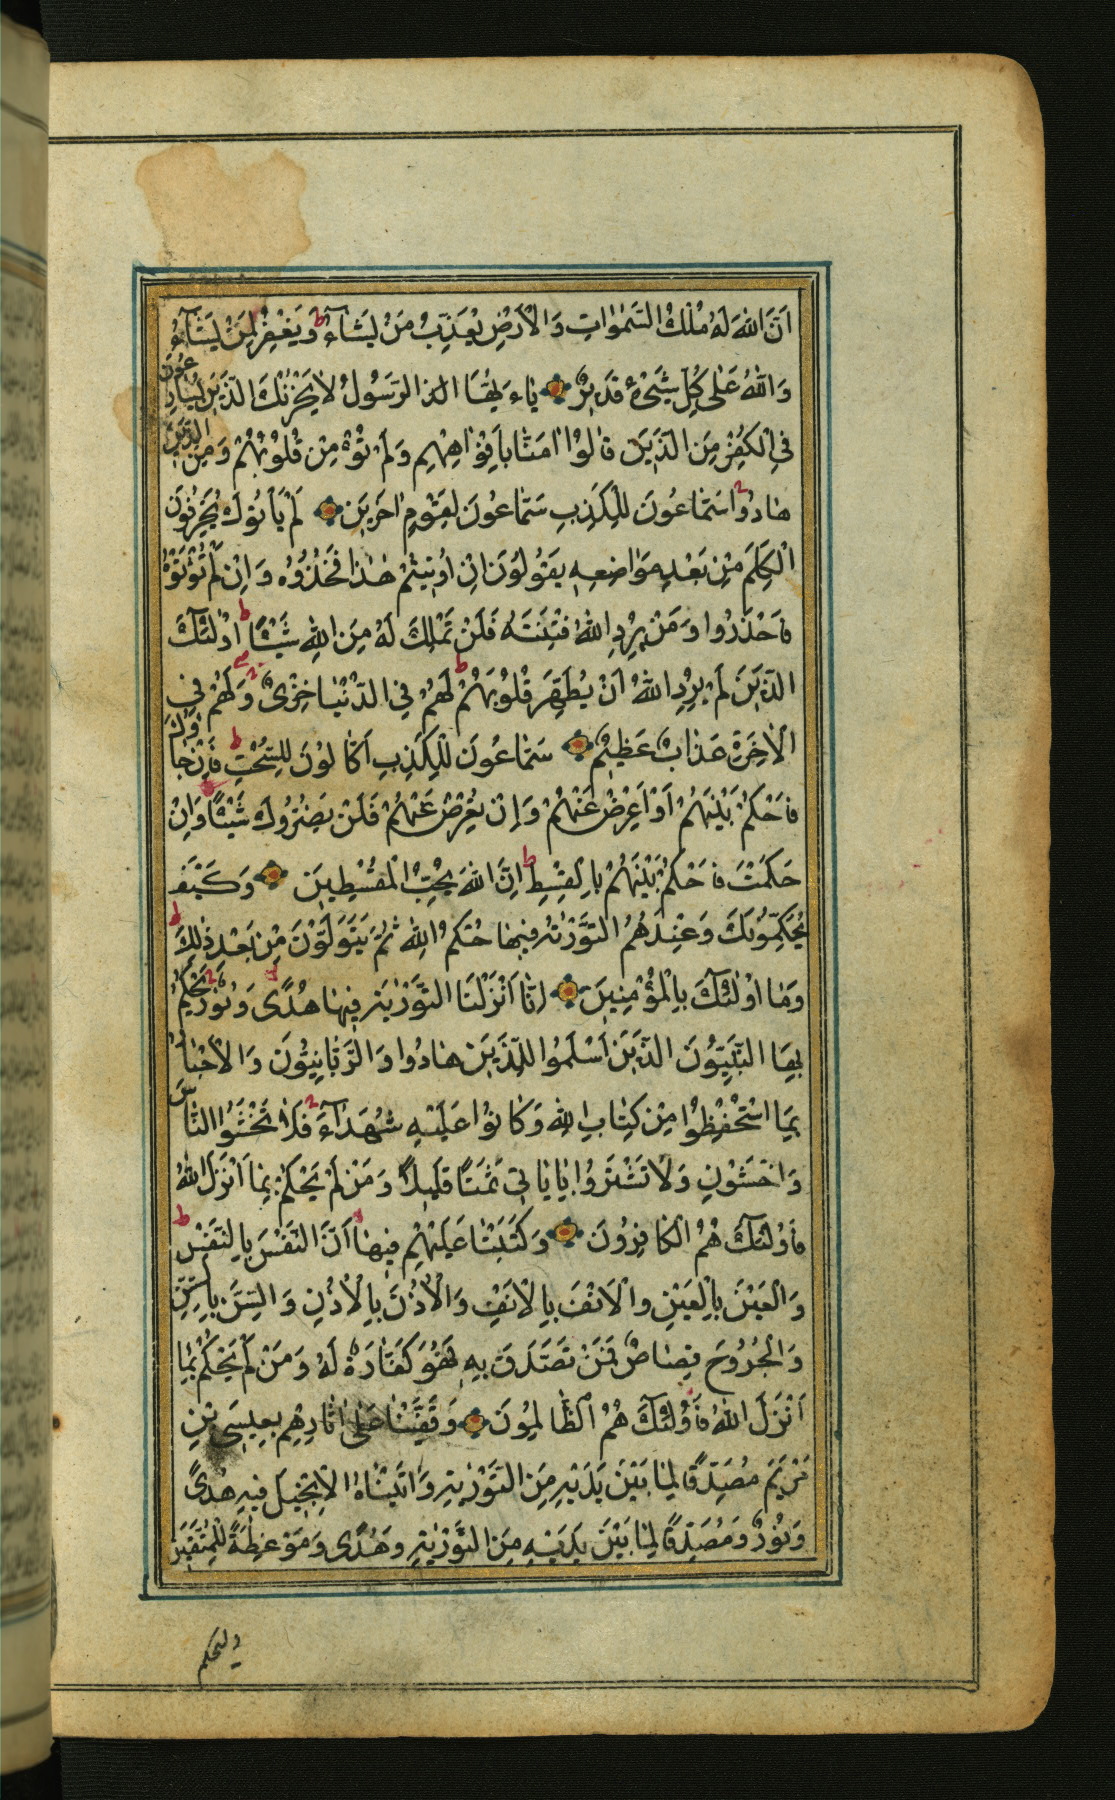 اَنَّ اللّٰهَ لَهُ مُلْكُ السَّمٰوَاتِ وَالْاَرْضِ يُعَذِّبُ مَنْ يَشَآءُ ط وَيَغْفِرُ لِمَنْ يَشَآءُ
وَاللّٰهُ عَلٰى كُلِّ شَيْءٍ قَدِيرٌ يَاءَيُّهَا الرَّسُولُ لَا يَحْزُنْكَ الَّذِينَ يُسَارِعُونَ
فِي الْكُفْرِ مِنَ الَّذِينَ قَالُوا اٰمَنَّا بِاَفْوَاهِهِمْ وَلَمْ تُؤْمِنْ قُلُوبُهُمْ وَمِنَ الَّذِينَ
هَادُوا سَمَّاعُونَ لِلْكَذِبِ سَمَّاعُونَ لِقَوْمٍ اٰخَرِينَ لَمْ يَأْتُوكَ يُحَرِّفُونَ
الْكَلِمَ مِنْ بَعْدِ مَوَاضِعِهِ يَقُولُونَ اِنْ اُوتِيتُمْ هٰذَا فَخُذُوهُ وَاِنْ لَمْ تُؤْتَوْهُ
فَاحْذَرُوا وَمَنْ يُرِدِ اللّٰهُ فِتْنَتَهُ فَلَنْ تَمْلِكَ لَهُ مِنَ اللّٰهِ شَيْئًا ط اُولٰئِكَ
الَّذِينَ لَمْ يُرِدِ اللّٰهُ اَنْ يُطَهِّرَ قُلُوبَهُمْ ط لَهُمْ فِي الدُّنْيَا خِزْيٌ وَلَهُمْ فِي
الْاٰخِرَةِ عَذَابٌ عَظِيمٌ سَمَّاعُونَ لِلْكَذِبِ اَكَّالُونَ لِلسُّحْتِ ط فَاِنْ جَاؤُكَ
فَاحْكُمْ بَيْنَهُمْ اَوْ اَعْرِضْ عَنْهُمْ وَاِنْ تُعْرِضْ عَنْهُمْ فَلَنْ يَضُرُّوكَ شَيْئًا وَاِنْ
حَكَمْتَ فَاحْكُمْ بَيْنَهُمْ بِالْقِسْطِ ط اِنَّ اللّٰهَ يُحِبُّ الْمُقْسِطِينَ وَكَيْفَ
يُحَكِّمُونَكَ وَعِنْدَهُمُ التَّوْرٰيةُ فِيهَا حُكْمُ اللّٰهِ ثُمَّ يَتَوَلَّوْنَ مِنْ بَعْدِ ذٰلِكَ ط
وَمَا اُولٰئِكَ بِالْمُؤْمِنِينَ اِنَّا اَنْزَلْنَا التَّوْرٰيةَ فِيهَا هُدًى وَنُورٌ يَحْكُمُ
بِهَا النَّبِيُّونَ الَّذِينَ اَسْلَمُوا لِلَّذِينَ هَادُوا وَالرَّبَّانِيُّونَ وَالْاَحْبَارُ
بِمَا اسْتُحْفِظُوا مِنْ كِتَابِ اللّٰهِ وَكَانُوا عَلَيْهِ شُهَدَآءَ فَلَا تَخْشَوُا النَّاسَ
وَاخْشَوْنِ وَلَا تَشْتَرُوا بِاٰيَاتِي ثَمَنًا قَلِيلًا وَمَنْ لَمْ يَحْكُمْ بِمَا اَنْزَلَ اللّٰهُ
فَاُولٰئِكَ هُمُ الْكَافِرُونَ وَكَتَبْنَا عَلَيْهِمْ فِيهَا اَنَّ النَّفْسَ بِالنَّفْسِ ط
وَالْعَيْنَ بِالْعَيْنِ وَالْاَنْفَ بِالْاَنْفِ وَالْاُذُنَ بِالْاُذُنِ وَالسِّنَّ بِالسِّنِّ
وَالْجُرُوحَ قِصَاصٌ فَمَنْ تَصَدَّقَ بِهِ فَهُوَ كَفَّارَةٌ لَهُ وَمَنْ لَمْ يَحْكُمْ بِمَا
اَنْزَلَ اللّٰهُ فَاُولٰئِكَ هُمُ الظَّالِمُونَ وَقَفَّيْنَا عَلٰى اٰثَارِهِمْ بِعِيسَى بْنِ
مَرْيَمَ مُصَدِّقًا لِمَا بَيْنَ يَدَيْهِ مِنَ التَّوْرٰيةِ وَاٰتَيْنَاهُ الْاِنْجِيلَ فِيهِ هُدًى
وَنُورٌ وَمُصَدِّقًا لِمَا بَيْنَ يَدَيْهِ مِنَ التَّوْرٰيةِ وَهُدًى وَمَوْعِظَةً لِلْمُتَّقِينَ
وليحكم